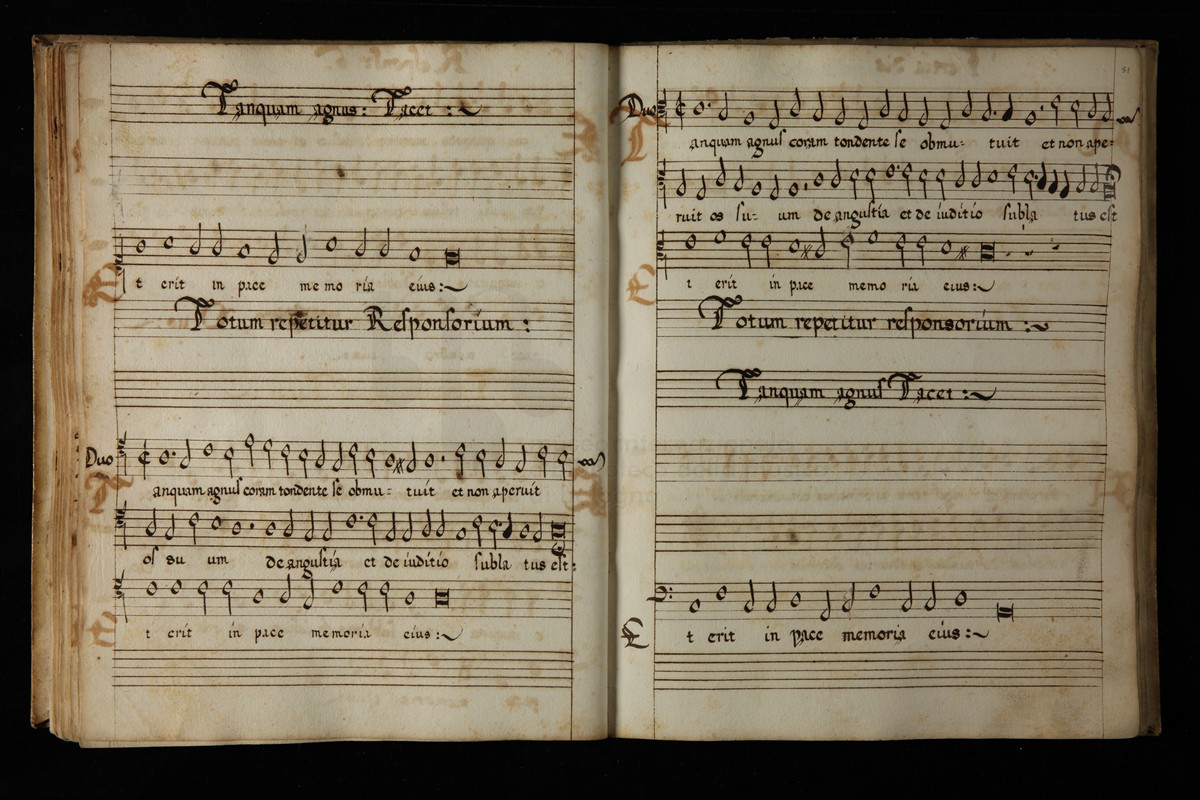 Tanquam agnus: Tacet :~
Et erit in pace memoria eius:~
Totum repetitur Responsorium :
Duo
Tanquam agnus coram tondente se obmu= tuit et non aperuit
os su um de angustia et de iuditio subla tus est:
Et erit in pace memoria eius:~
51
Duo
Tanquam agnus coram tondente se obmu= tuit et non ape=
ruit os su= um de angustia et de iuditio subla tus est
Et erit in pace memo ria eius:~
Totum repetitur responsorium :~
Tanquam agnus Tacet :~
Et erit in pace memoria eius:~